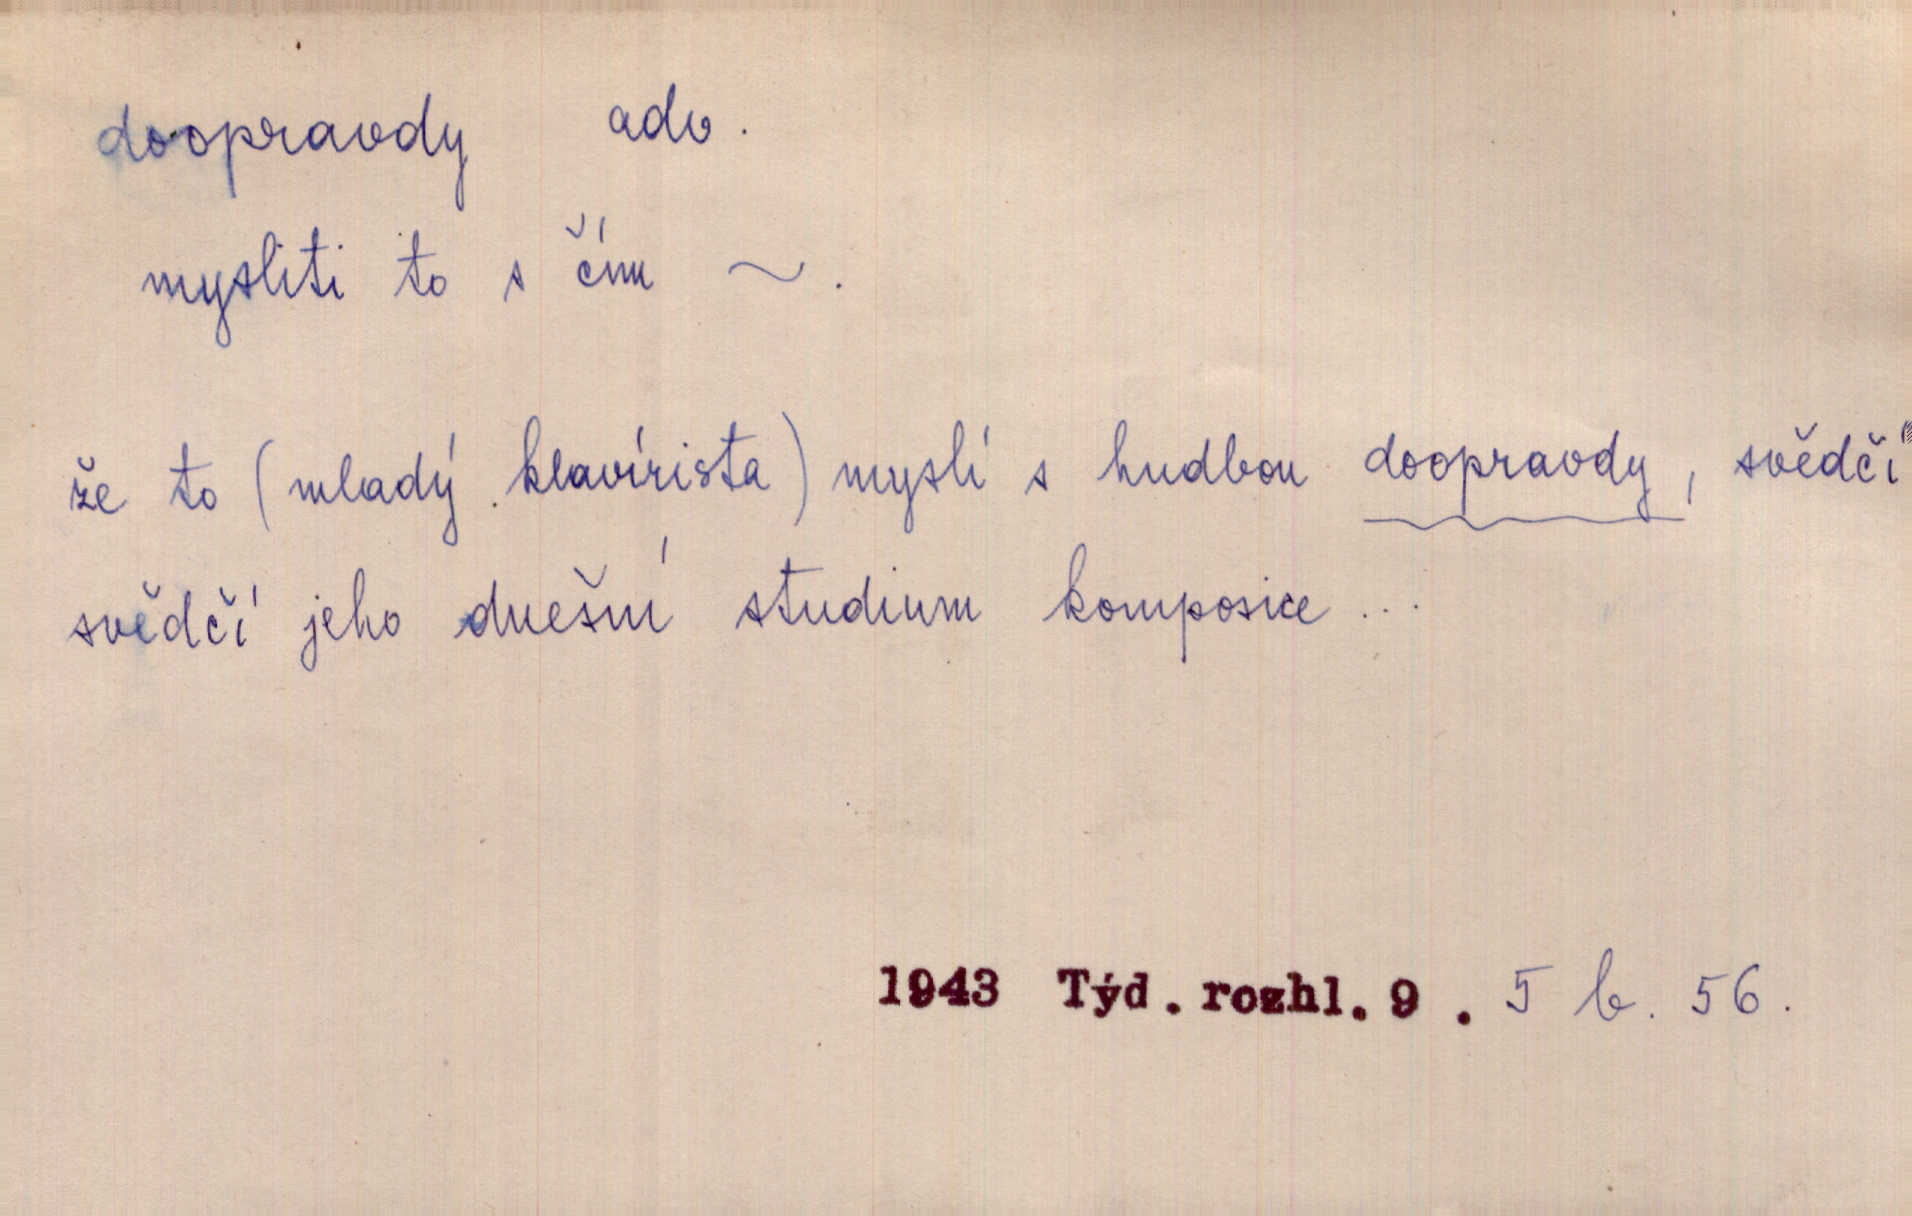 doopravdy adv.
mysliti to s čím ~.
že to (mladý klavírista) myslí s hudbou doopravdy, svědčí
svědčí jeho dnešní studium komposice ...
1943 Týd. rozhl. 9. 5 b. 56.